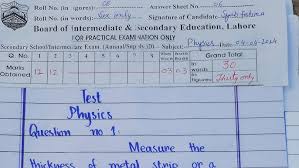 Roll No. (in igures): 06 Answer Sheet No. 06
Roll No. (in words): Six only Signature of Candidate:
Board of Intermediate & Secondary Education, Lahore
FOR PRACTICAL EXAMINATION ONLY
Secondary School/Intermediate Exam. (Annual/Sup) 20 Subject: Physics Date
Q. No. 1 2 3 4 5 6 7 8 Grand Total
Marks Obtained 12 12 03 03 In words 30
In figures Thirty only
Test
Physics
Question no 1:
Measure the
thickness of metal strip or a